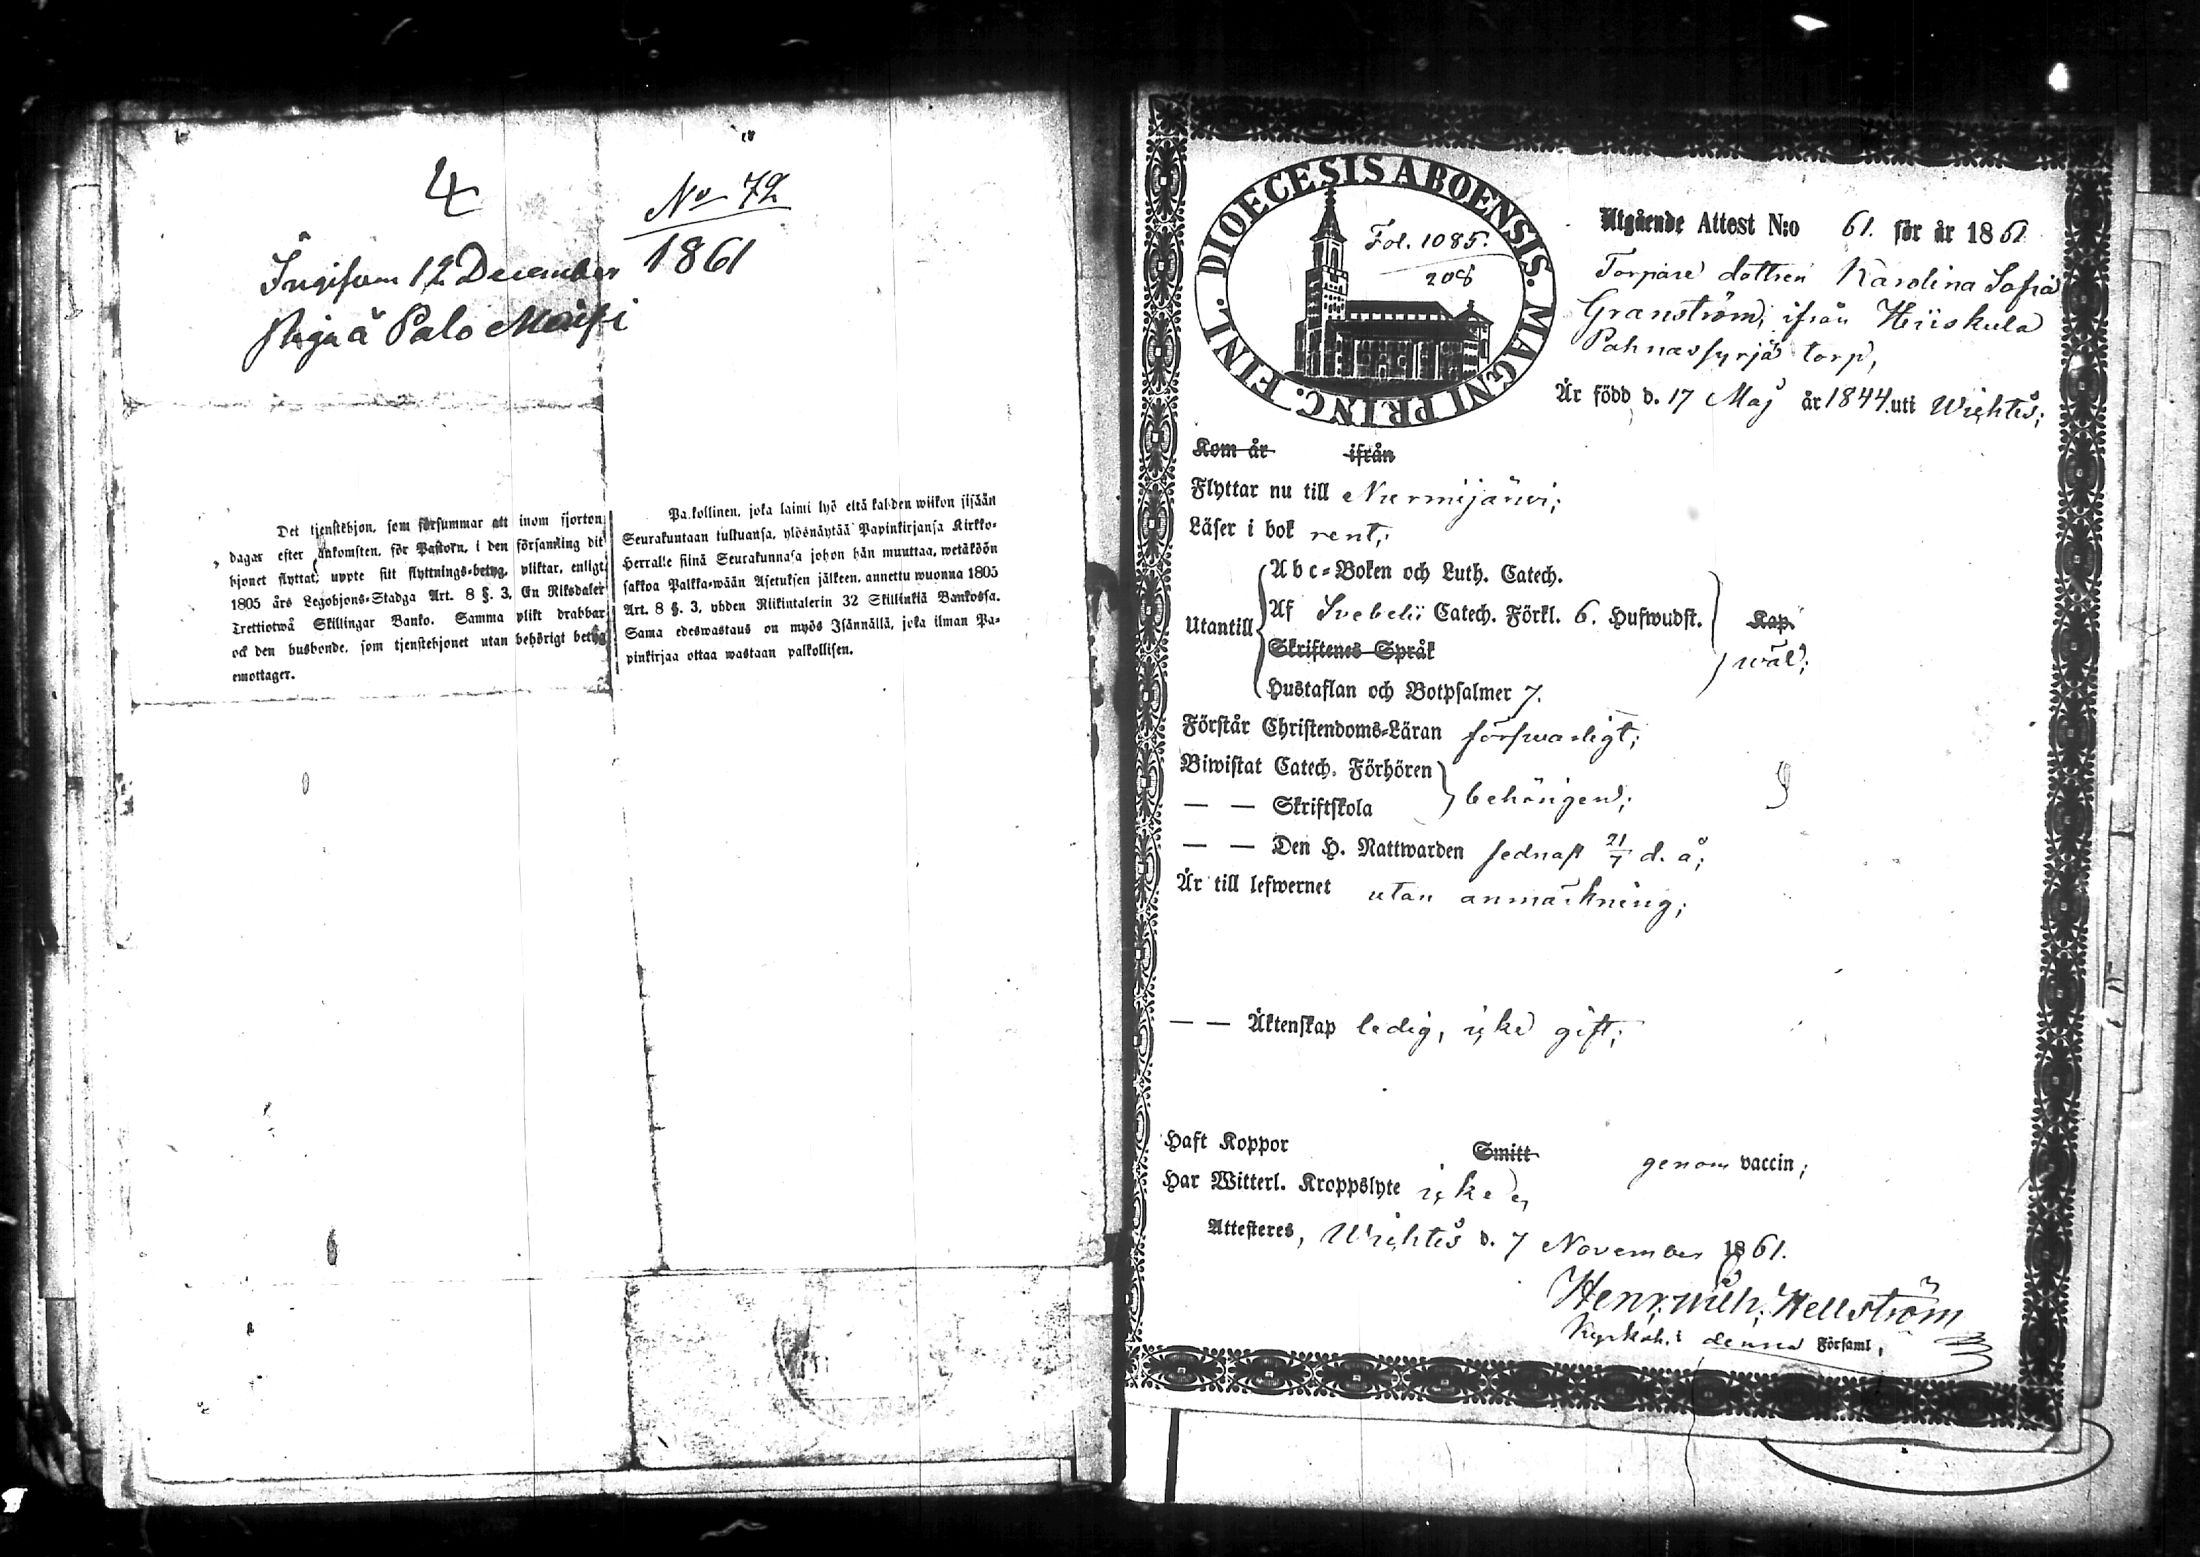 4
No 72
1861
Ingifven 12 December
Piga å Palo
Det tjenstehjon, som försummar att inom fjorton
dagar efter ankomsten, för Pastorn, i den församling dit
hjonet flyttat, uppte sitt flyttnings-betyg, pliktar, enligt
1805 års Legohjons-Stadga Art. 8 §. 3. En Riksdaler
Trettiotwå Skillingar Banko. Samma plikt drabbar
ock den husbonde, som tjenstehjonet utan behörigt betyg
emottager.
Palkollinen, joka laimi lyö että kahden wiikon sisään
Seurakuntaan tultuansa, ylösnäytää Papinkirjansa Kirkko-
Herralle siinä Seurakunnasa johon hän muuttaa, wetäköön
sakkoa Palkka-wään Asetuksen jälkeen, annettu wuonna 1805
Art. 8 §. 3, yhden Riikintalerin 32 Skillinkiä Bankossa.
Sama edeswastaus on myös Isännällä, joka ilman Pa-
pinkirjaa ottaa wastaan palkollisen.
DIOECESIS ABOENSIS. MAGNI PRINC. FINL.
Fol. 1085.
208
Utgående Attest N:o 61. för år 1861
Torpare dottren Karolina Sofia
Granström, ifrån Hiiskula
Pahnassyrjä torp,
Är född d. 17 Maj år 1844. uti Wichtis;
Kom år ifrån
Flyttar nu till Nurmijärwi;
Läser i bok rent;
Utantill
Abc-Boken och Luth. Catech.
Af Svebelii Catech. Förkl. 6. Hufwudst.
Skriftenes Språk
Hustaflan och Botpsalmer 7.
Kap.
wäl;
Förstår Christendoms-Läran förswarligt;
Biwistat Catech. Förhören
— — Skriftskola
behörigen;
— — Den H. Nattwarden sednast 21/7 d. å;
Är till lefwernet utan anmärkning;
— — Äktenskap ledig, icke gift;
Haft Koppor Smitt genom vaccin;
Har Witterl. Kroppslyte icke,
Attesteres, Wichtis d. 7 November 1861.
Henr. Wilh. Hellström
Kyrkoh. i denna Församl.